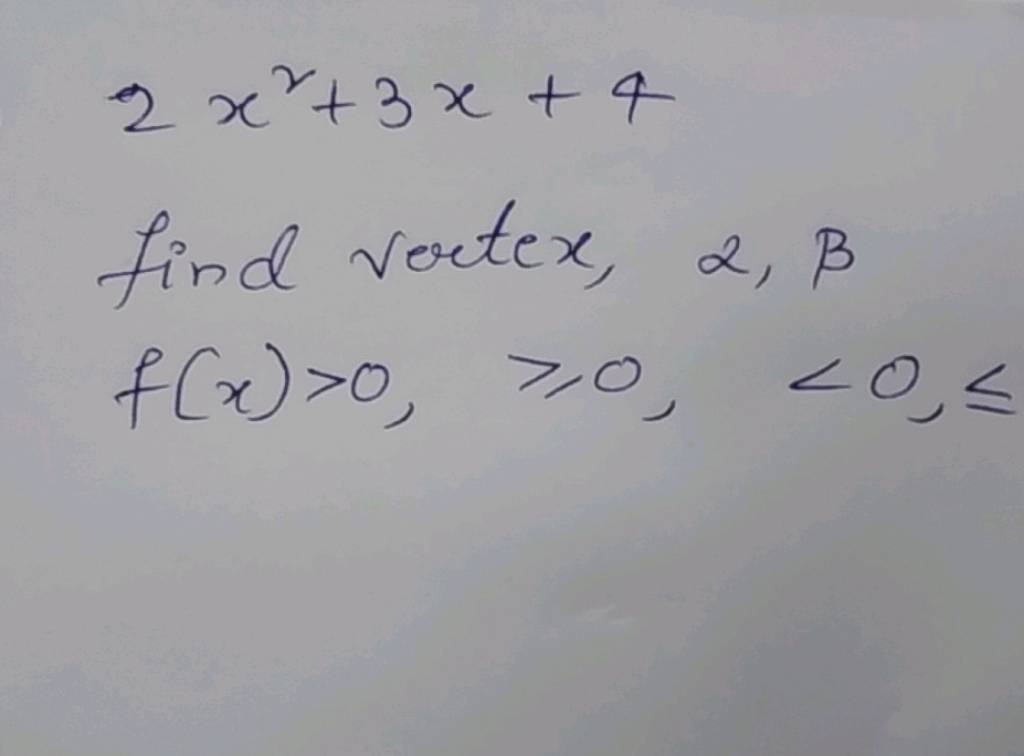 2x²+3x+4
find vertex, α, β
f(x)>0, ≥0, <0, ≤